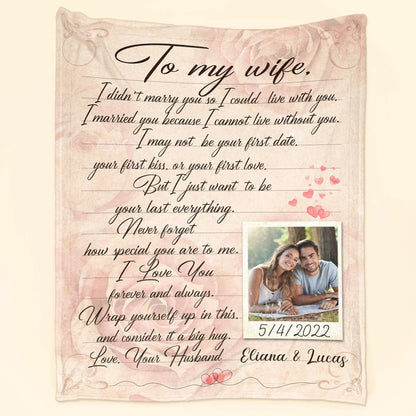 To my wife,
I didn't marry you so I could live with you.
I married you because I cannot live without you.
I may not be your first date,
your first kiss, or your first love.
But I just want to be
your last everything.
Never forget
how special you are to me.
I Love You
forever and always.
Wrap yourself up in this,
and consider it a big hug.
Love, Your Husband
5/4/2022
Eliana & Lucas